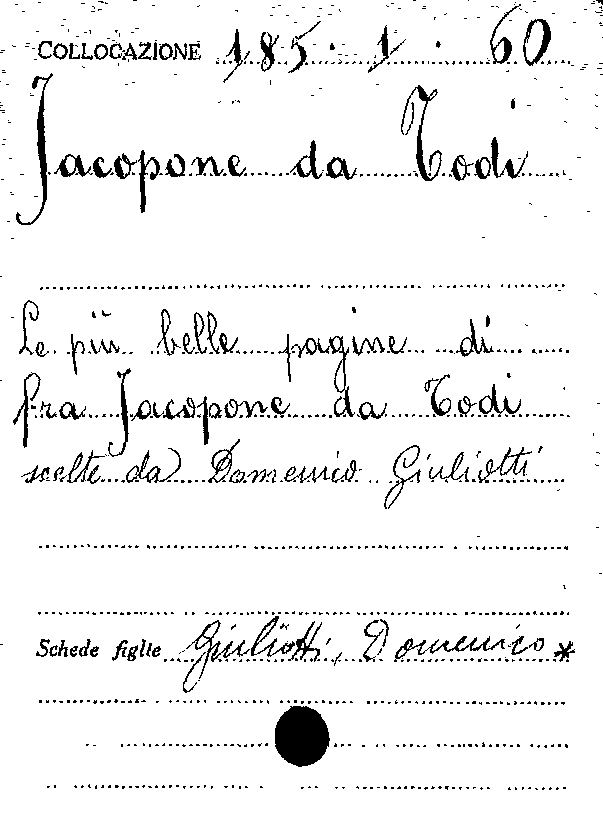 COLLOCAZIONE 185. 1. 60
Jacopone da Todi
Le più belle pagine di
fra Jacopone da Todi
scelte da Domenico Giuliotti
Schede figlie Giuliotti, Domenico *